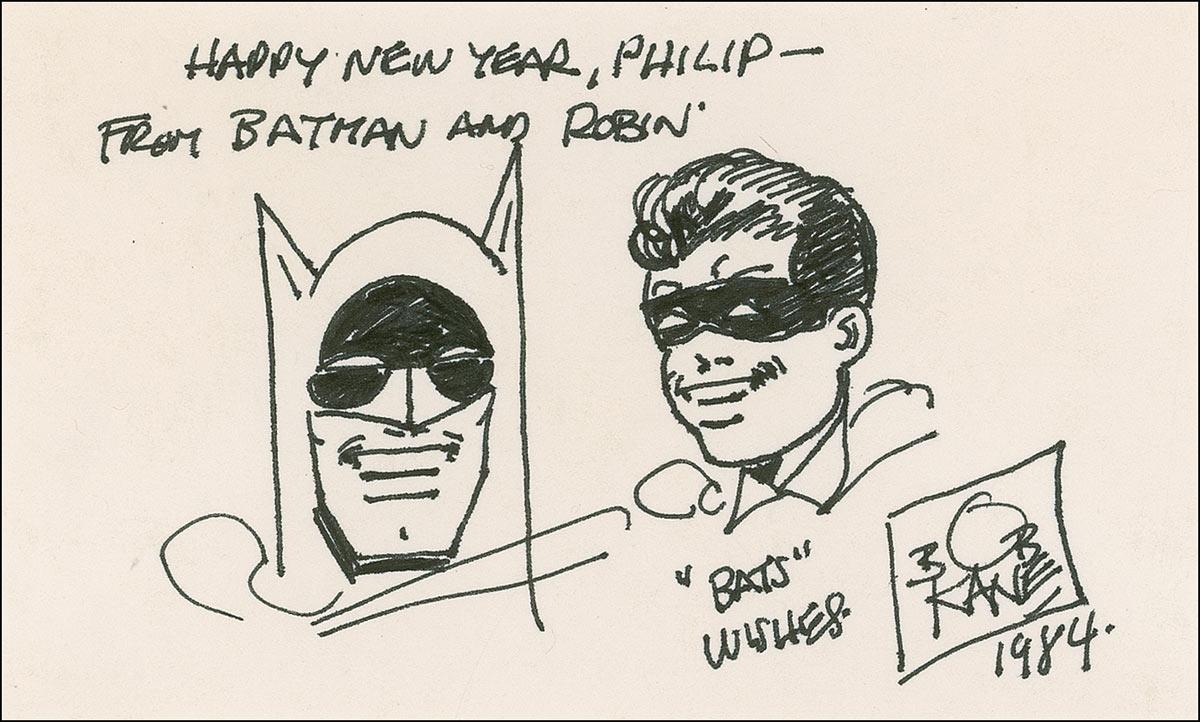 HAPPY NEW YEAR, PHILIP—
FROM BATMAN AND ROBIN
"BATS"
WISHES.
BOB
KANE
1984.